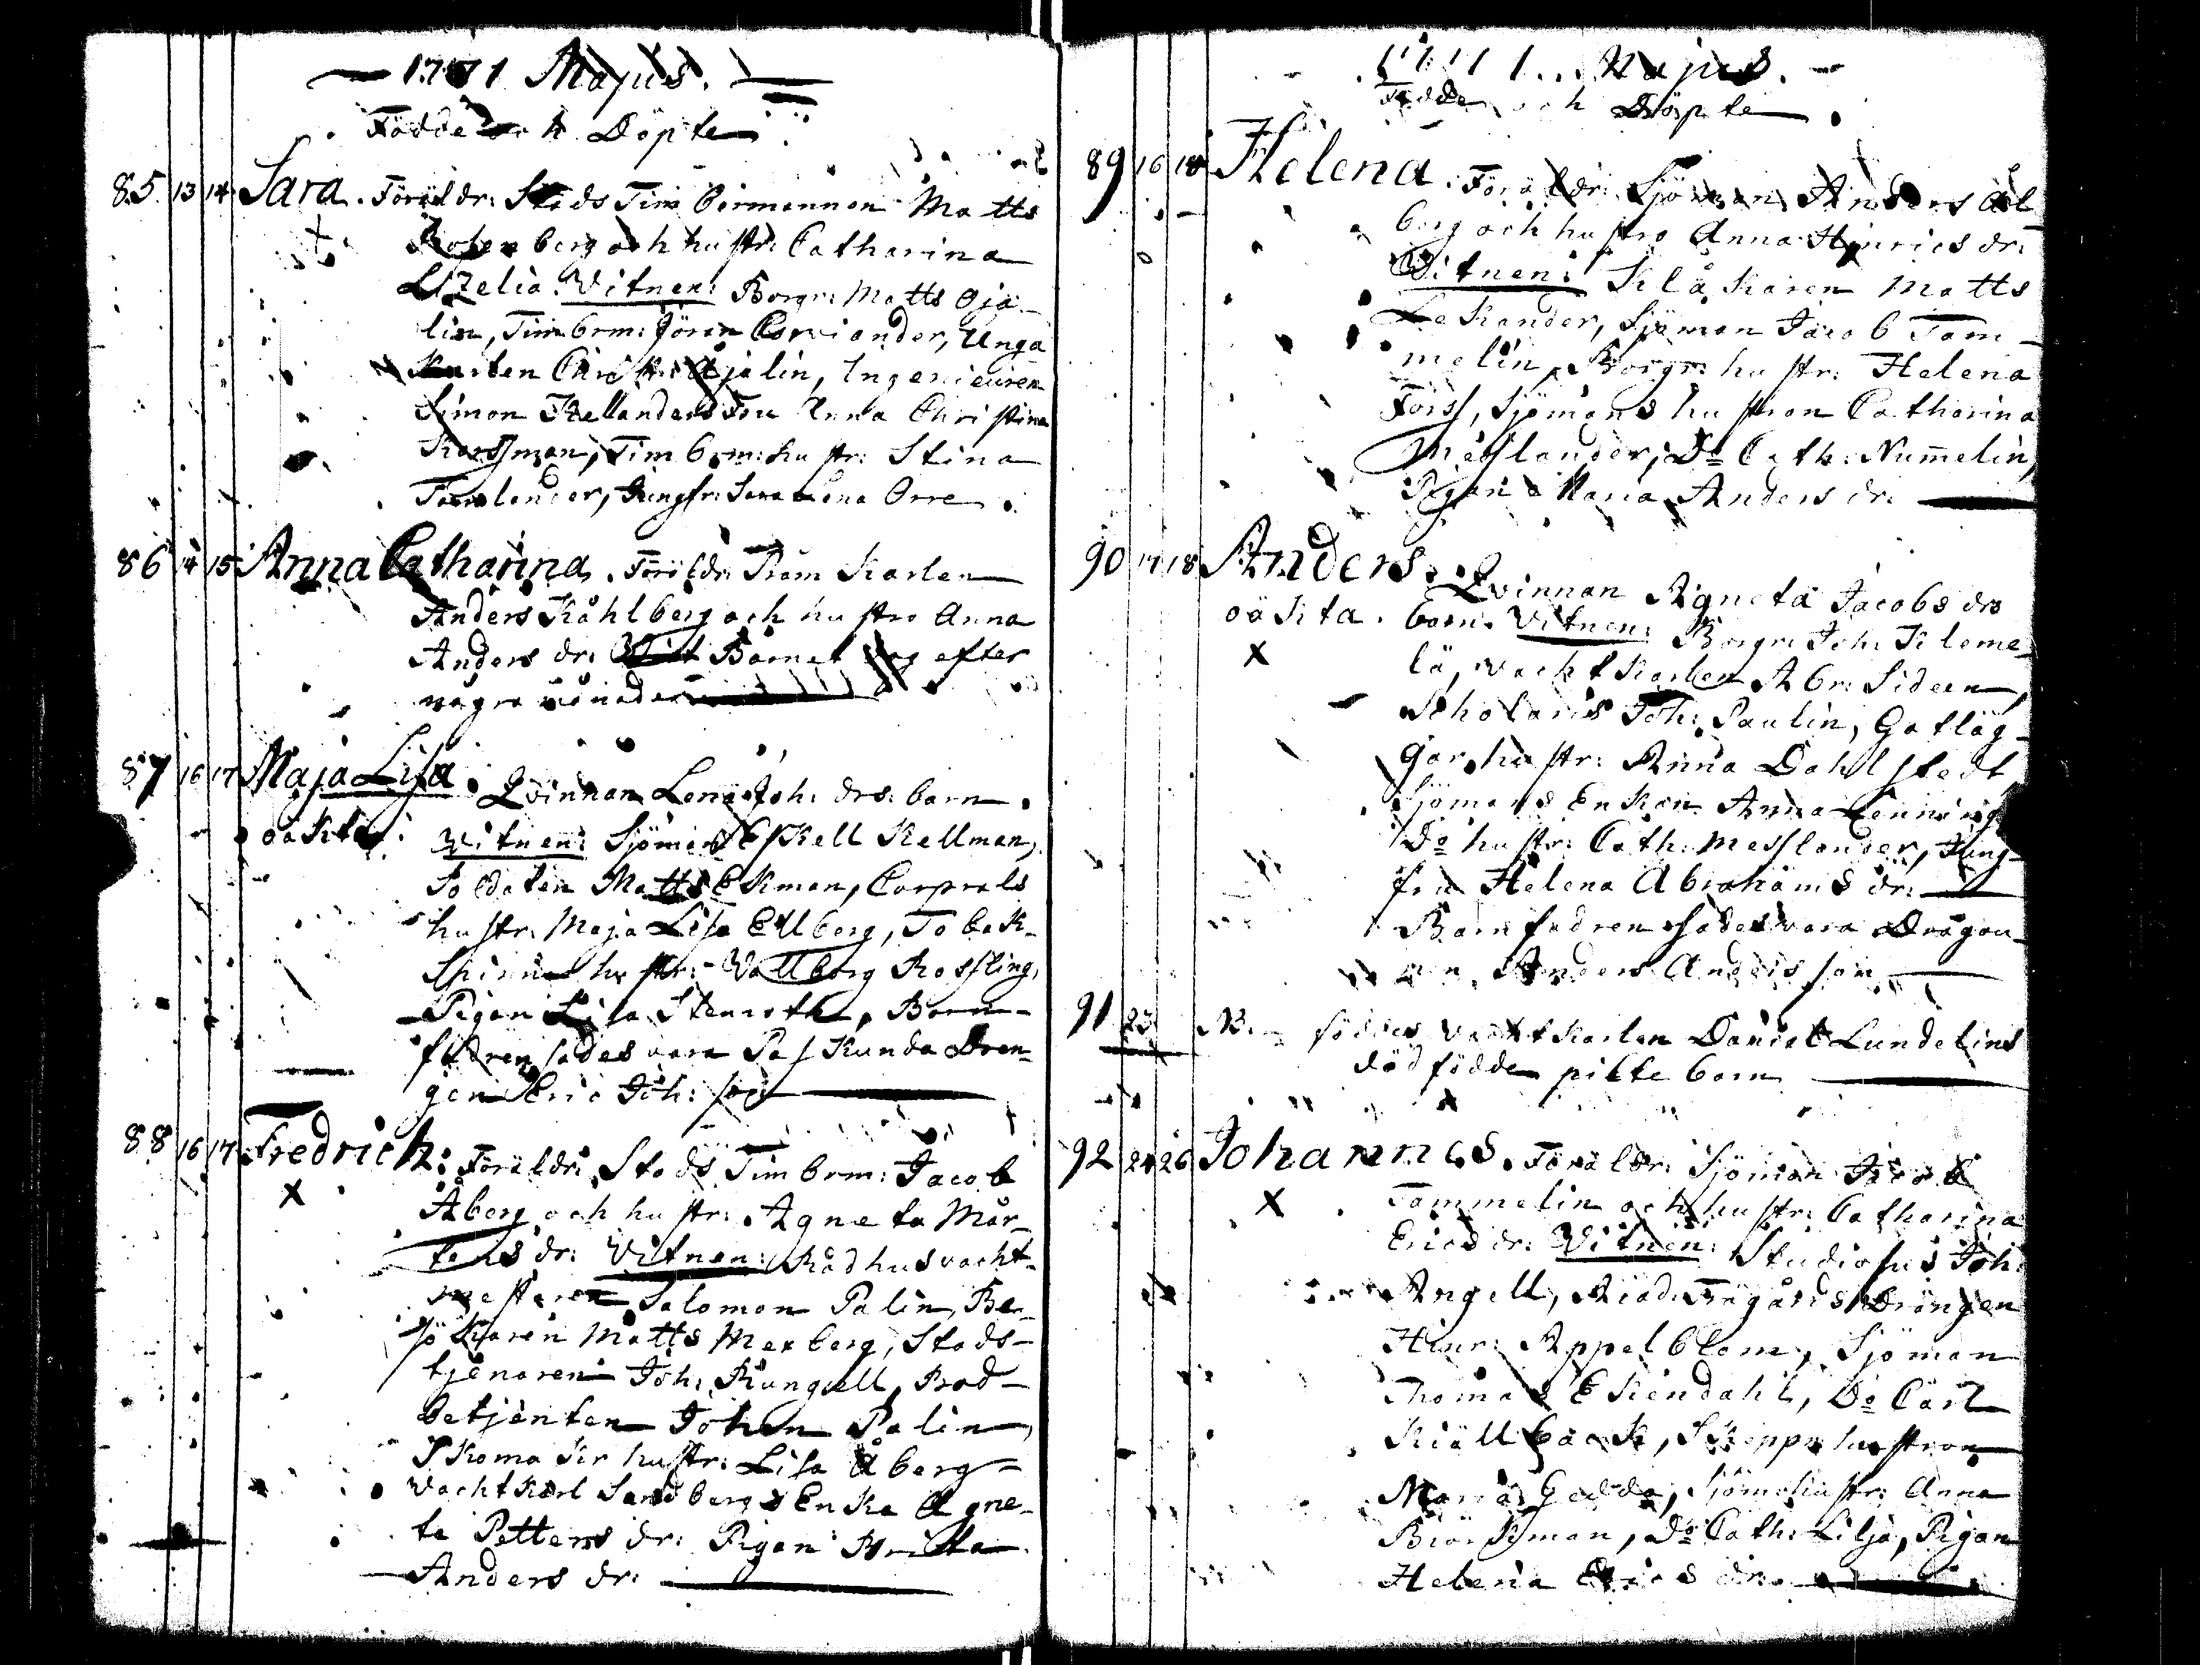 1771 Majus.
Födde och Döpte
85 13 14 Sara. Föräldr: Stads Timbermannen Matts
Rosenberg och hustr: Catharina
Lizelia. Vitnen: Borgr: Matts Oja-
lin, Timbrm: Jören Corviander, Unga
Karlen Christ: Ojalin, Ingenieuren
Simon Kellanders Fru Anna Christina
Timbrm: hustr: Stina
Jungfr: Sara Lena Orre.
86 14 15 Anna Catharina. Föräldr: Pråm Karlen
Anders Kåhlberg och hustro Anna
Anders dr: Barnet dog efter
några månader
87 16 17 Maja Lisa. Qvinnan Lena Joh: drs: barn.
oäkta. Vitnen: Sjöman Eskell Kellman,
Soldaten Matts Ekman, Corprals
hustr: Maja Lisa Ellberg, Tobak-
Spinnar hustr: Vallborg Rossling,
Pigan Lisa Stenroth, Barn-
fadren sades vara Drän-
gen Eric Joh: son
88 16 17 Fredrich: Föräldr: Stads Timbrm: Jacob
X Åberg och hustr: Agneta Mår-
tens dr: Vitnen: Rådhusvacht-
mestaren Salomon Palin, Be-
sökaren Matts Mexberg, Stads-
tjenaren Joh: Rungell, Brod-
betjenten Johan Palin,
Skomakr hustr: Lisa Åberg
Vachtkarl Sandbergs Enka Agne-
ta Petters dr: Pigan Britta
Anders dr:
1771. Majus.
Födde och Döpte
89 16 18 Helena. Föräldr: Sjöman Anders Ål-
berg och hustro Anna Hinrics dr:
Vitnen: Klåkaren Matts
Lekander, Sjöman Jacob Tam-
melin, Borgr: hustr: Helena
Forss, Sjömans hustron Catharina
Messlander, Do Cath: Nummelin,
Pigan Maria Anders dr:
90 17 18 Anders. Qvinnan Agneta Jacobs drs
oäkta. barn. Vitnen: Borgr: Joh: Kleme-
X lä, Vachtkarlen Abr: Sideen,
Scholaris Joh: Paulin, Gatläg-
gar hustr: Anna Dahlstedt
Sjömans Enkan Anna Lenning
Do hustr: Cath: Messlander, Jung-
fru Helena Abrahams dr:
Barnfadren sades vara Dragou-
nen Anders Anders son
91 23 NB. föddes Vachtkarlen Daniel Lundelins
dödfödde pilte barn
92 24 26 Johannes. Föräldr: Sjöman Jacob
X Tammelin och hustr: Catharina
Erics dr: Vitnen: Studiosus Joh:
Angell, Trägårds Drängen
Hinr: Appelblom, Sjöman
Thomas Ekendahl, Do Carl
Kiällback, Skeppr hustron
Maria Gadda, Sjöms hustr: Anna
Biörkman, Do Cath: Lilja, Pigan
Helena Erics dr: